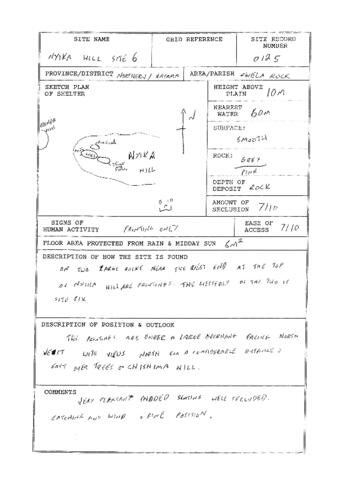 SITE NAME
GRID REFERENCE
SITE RECORD
NUMBER
NYIKA HILL SITE 6
0125
PROVINCE/DISTRICT NORTHERN/ KASAMA
AREA/PARISH MWELA ROCK
SKETCH PLAN
OF SHELTER
HEIGHT ABOVE
PLAIN 10M
NEAREST
WATER 60M
SURFACE:
SMOOTH
N
NYIKA
HILL
ROCK:
GREY
PINK
DEPTH OF
DEPOSIT ROCK
AMOUNT OF
SECLUSION 7/10
SIGNS OF
HUMAN ACTIVITY PAINTING ONLY
EASE OF
ACCESS 7/10
FLOOR AREA PROTECTED FROM RAIN & MIDDAY SUN 6M²
DESCRIPTION OF HOW THE SITE IS FOUND
ON TWO LARGE ROCKS NEAR THE WEST END AT THE TOP
OF NYIKA HILL ARE PAINTINGS. THE WESTERLY OF THE TWO IS
SITE SIX
DESCRIPTION OF POSITION & OUTLOOK
THE PAINTINGS ARE UNDER A LARGE OVERHANG FACING NORTH
WEST WITH VIEWS NORTH FOR A CONSIDERABLE DISTANCE &
EAST OVER TREES TO CHISHIMA HILL.
COMMENTS
VERY PLEASANT SHADED SETTING WELL SECLUDED.
CATCHING ANY WIND. A FINE POSITION.